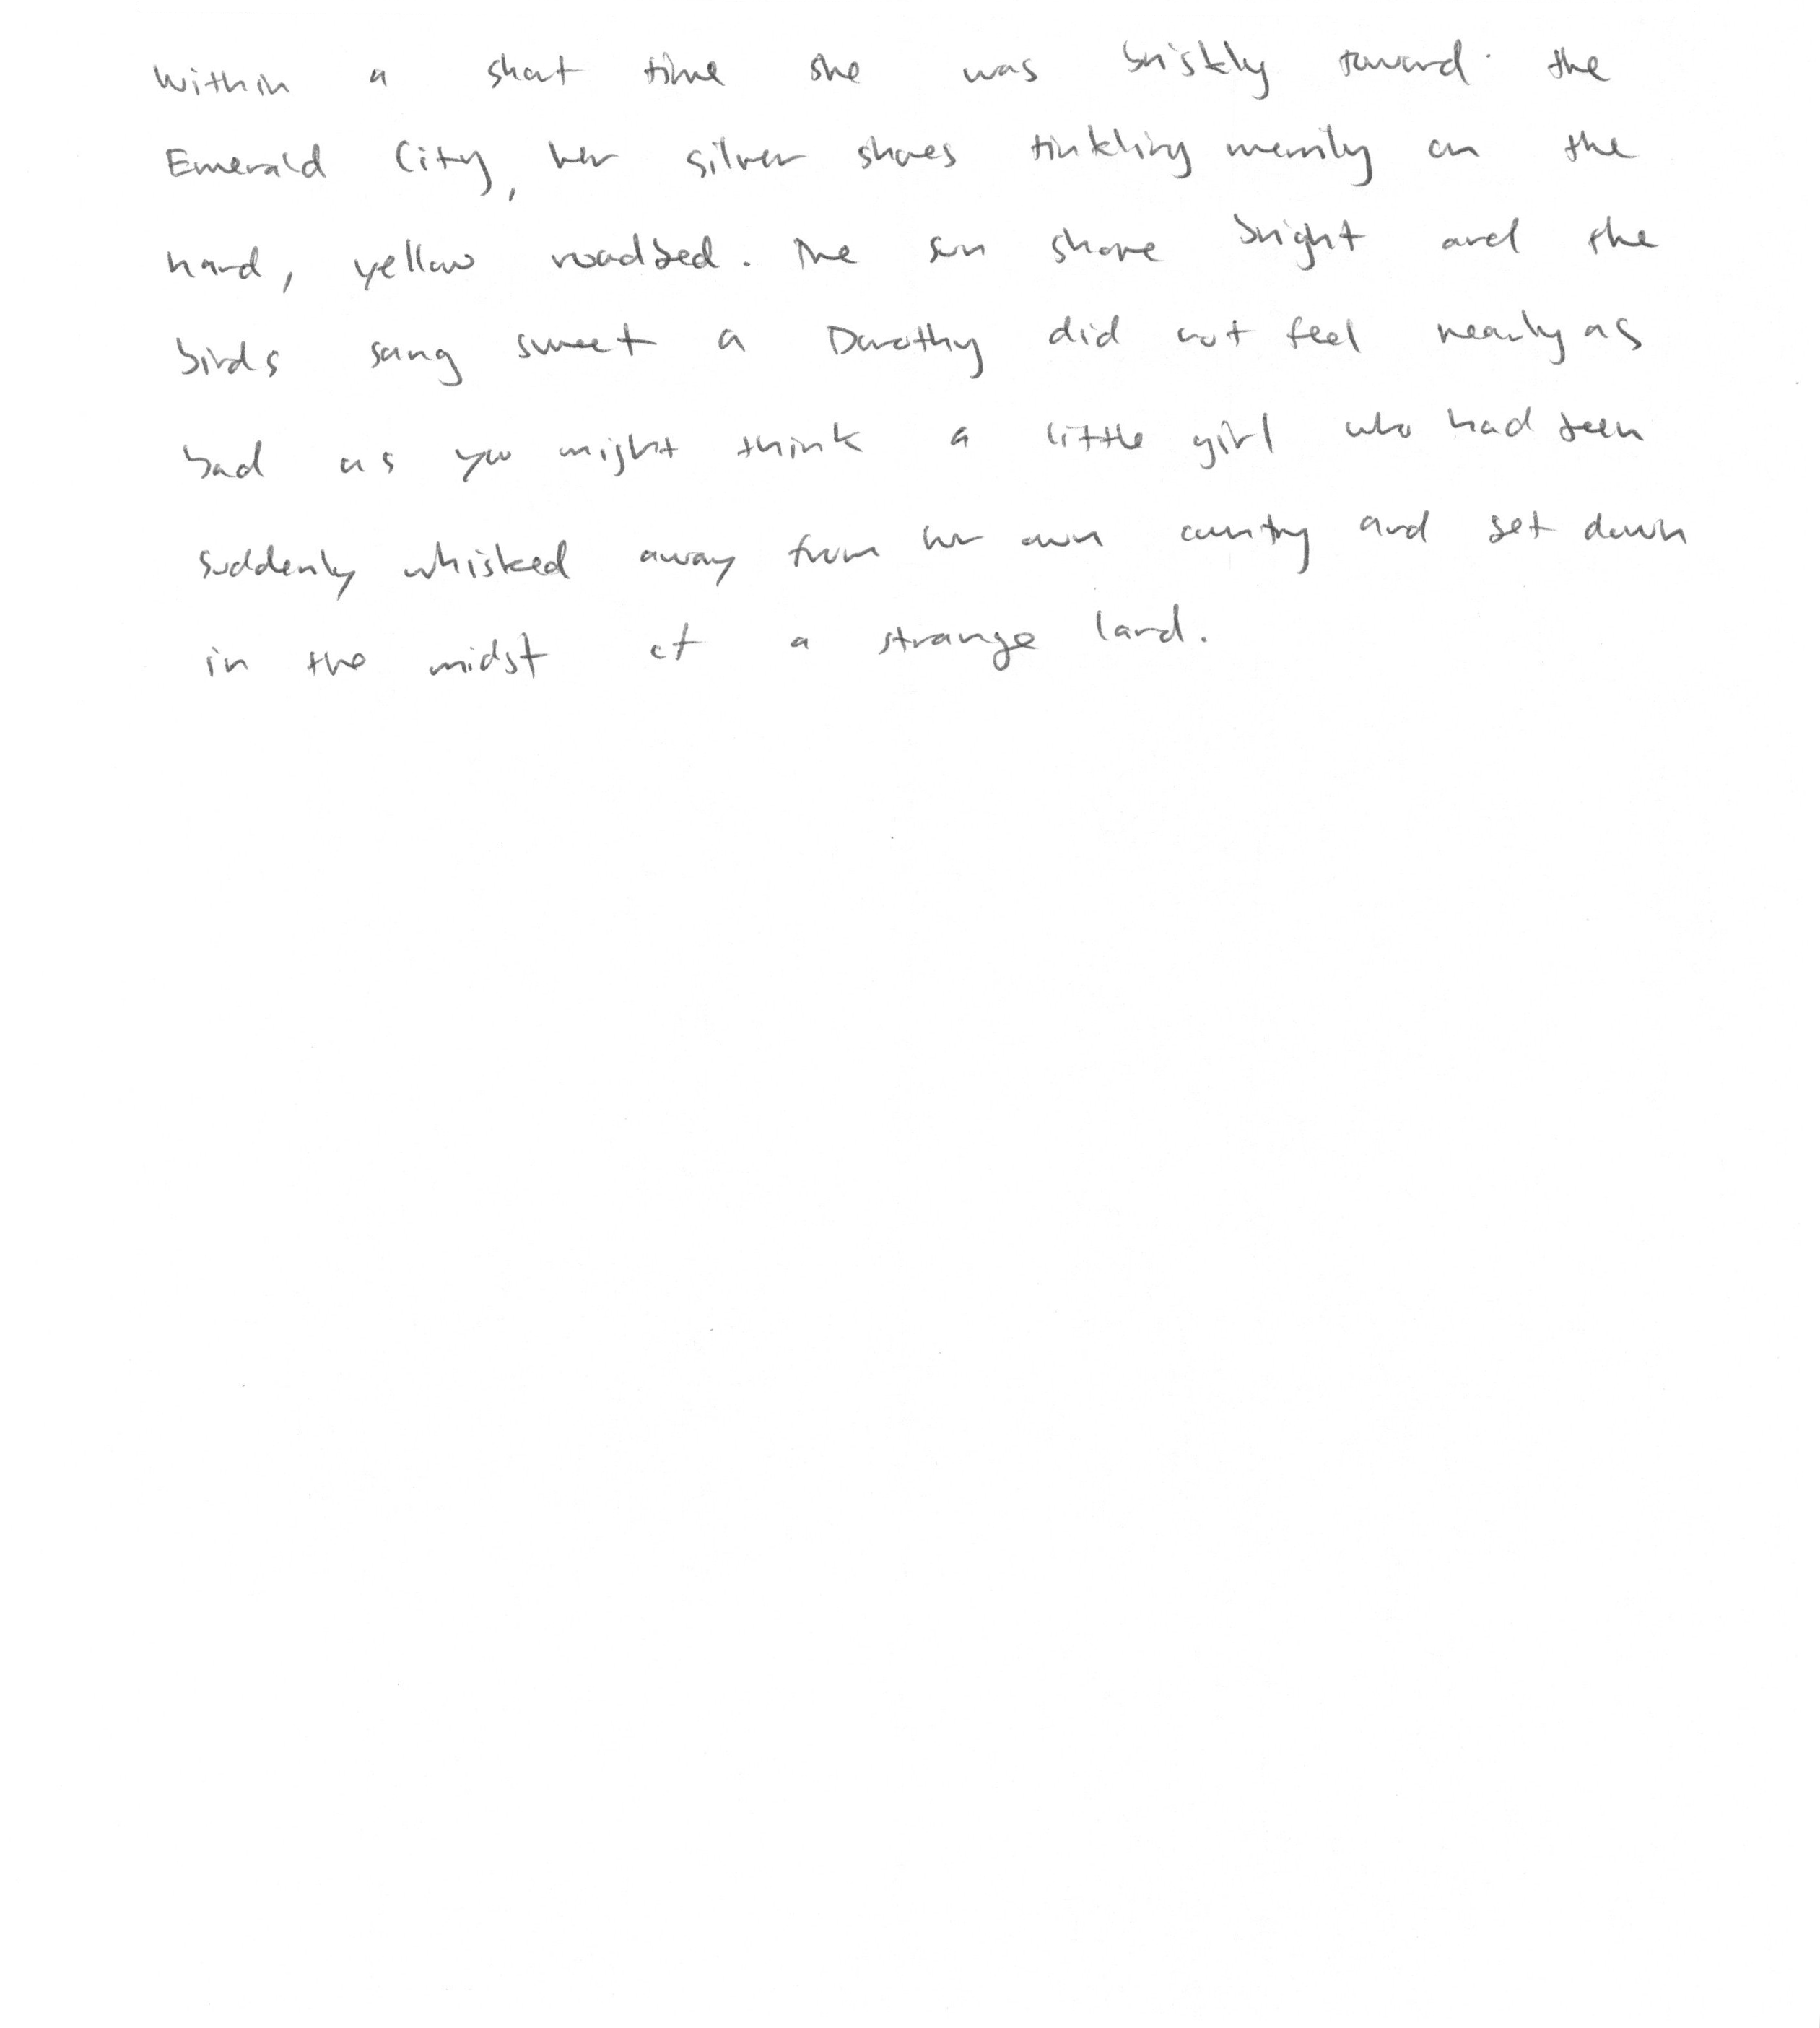 Within a short time she was briskly toward the
Emerald City, her silver shoes tinkling merrily on the
hard, yellow roadbed. The sun shone bright and the
birds sang sweet a Dorothy did not feel nearly as
bad as you might think a little girl who had been
suddenly whisked away from her own country and set down
in the midst of a strange land.